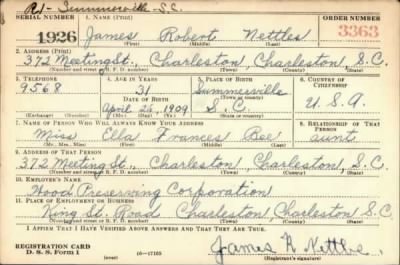 RJ - Summerville S.C.
SERIAL NUMBER 1. NAME (Print) ORDER NUMBER
1926 James Robert Nettles 3363
(First) (Middle) (Last)
2. ADDRESS (Print)
372 Meeting St., Charleston, Charleston, S.C.
(Number and street or R. F. D. number) (Town) (County) (State)
3. TELEPHONE 4. AGE IN YEARS 5. PLACE OF BIRTH 6. COUNTRY OF CITIZENSHIP
9568 31 Summerville
DATE OF BIRTH (Town or county)
April 26, 1909 S.C. U.S.A.
(Exchange) (Number) (Mo.) (Day) (Yr.) (State or country)
7. NAME OF PERSON WHO WILL ALWAYS KNOW YOUR ADDRESS 8. RELATIONSHIP OF THAT PERSON
Miss Ella Frances Bee aunt
(Mr., Mrs., Miss) (First) (Middle) (Last)
9. ADDRESS OF THAT PERSON
372 Meeting St., Charleston, Charleston, S.C.
(Number and street or R. F. D. number) (Town) (County) (State)
10. EMPLOYER'S NAME
Wood Preserving Corporation
11. PLACE OF EMPLOYMENT OR BUSINESS
King St. Road Charleston, Charleston S.C.
(Number and street or R. F. D. number) (Town) (County) (State)
I AFFIRM THAT I HAVE VERIFIED ABOVE ANSWERS AND THAT THEY ARE TRUE.
REGISTRATION CARD
D. S. S. Form 1 (over) 16-17105
James R Nettles
(Registrant's signature)